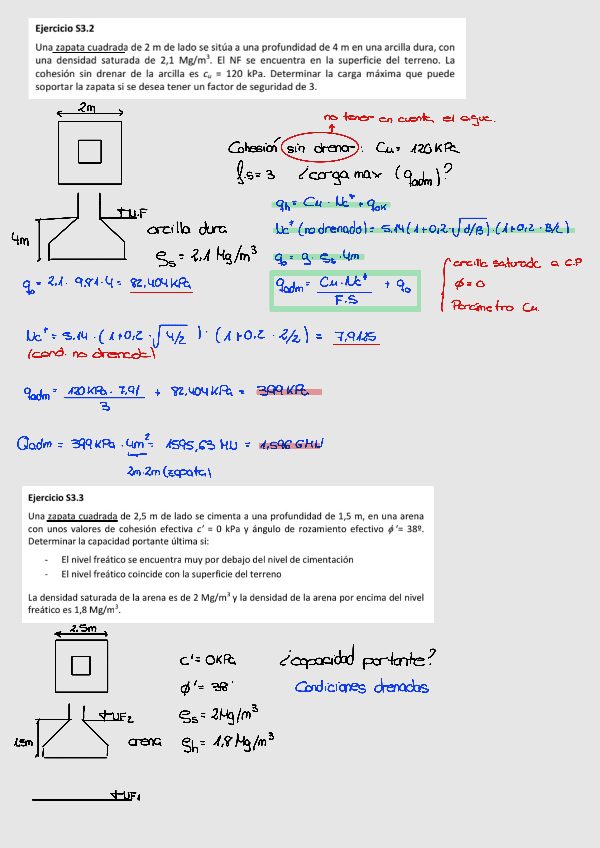 Ejercicio S3.2
Una zapata cuadrada de 2 m de lado se sitúa a una profundidad de 4 m en una arcilla dura, con
una densidad saturada de 2,1 Mg/m³. El NF se encuentra en la superficie del terreno. La
cohesión sin drenar de la arcilla es cᵤ = 120 kPa. Determinar la carga máxima que puede
soportar la zapata si se desea tener un factor de seguridad de 3.
no tener en cuenta el agua.
2m
Cohesión sin drenar: Cu = 120 KPa
f.s = 3 ¿carga max (qadm)?
qh = Cu · Nc* + qok
N.F
arcilla dura
Nc* (no drenado) = 5.14 (1+0,2 · √d/B) · (1+0,2 · B/L)
4m
ρs = 2,1 Mg/m³
q₀ = g · ρs · 4m
arcilla saturada a C.P
ϕ = 0
Parámetro Cu.
q₀ = 2,1 · 9,81 · 4 = 82,404 KPa
qadm = Cu · Nc* / F.S + q₀
Nc* = 5.14 · (1+0,2 · √4/2) · (1+0,2 · 2/2) = 7,9125
(cond. no drenada)
qadm = 120 KPa · 7,91 / 3 + 82,404 KPa = 399 KPa
Qadm = 399 KPa · 4m² = 1595,63 MN = 1,596 GMN
2m·2m (zapata)
Ejercicio S3.3
Una zapata cuadrada de 2,5 m de lado se cimenta a una profundidad de 1,5 m, en una arena
con unos valores de cohesión efectiva c' = 0 kPa y ángulo de rozamiento efectivo ϕ'= 38º.
Determinar la capacidad portante última si:
- El nivel freático se encuentra muy por debajo del nivel de cimentación
- El nivel freático coincide con la superficie del terreno
La densidad saturada de la arena es de 2 Mg/m³ y la densidad de la arena por encima del nivel
freático es 1,8 Mg/m³.
2.5m
c' = 0KPa ¿capacidad portante?
ϕ' = 38° Condiciones drenadas
NF2
ρs = 2Mg/m³
1.5m
arena
ρh = 1,8 Mg/m³
NF1